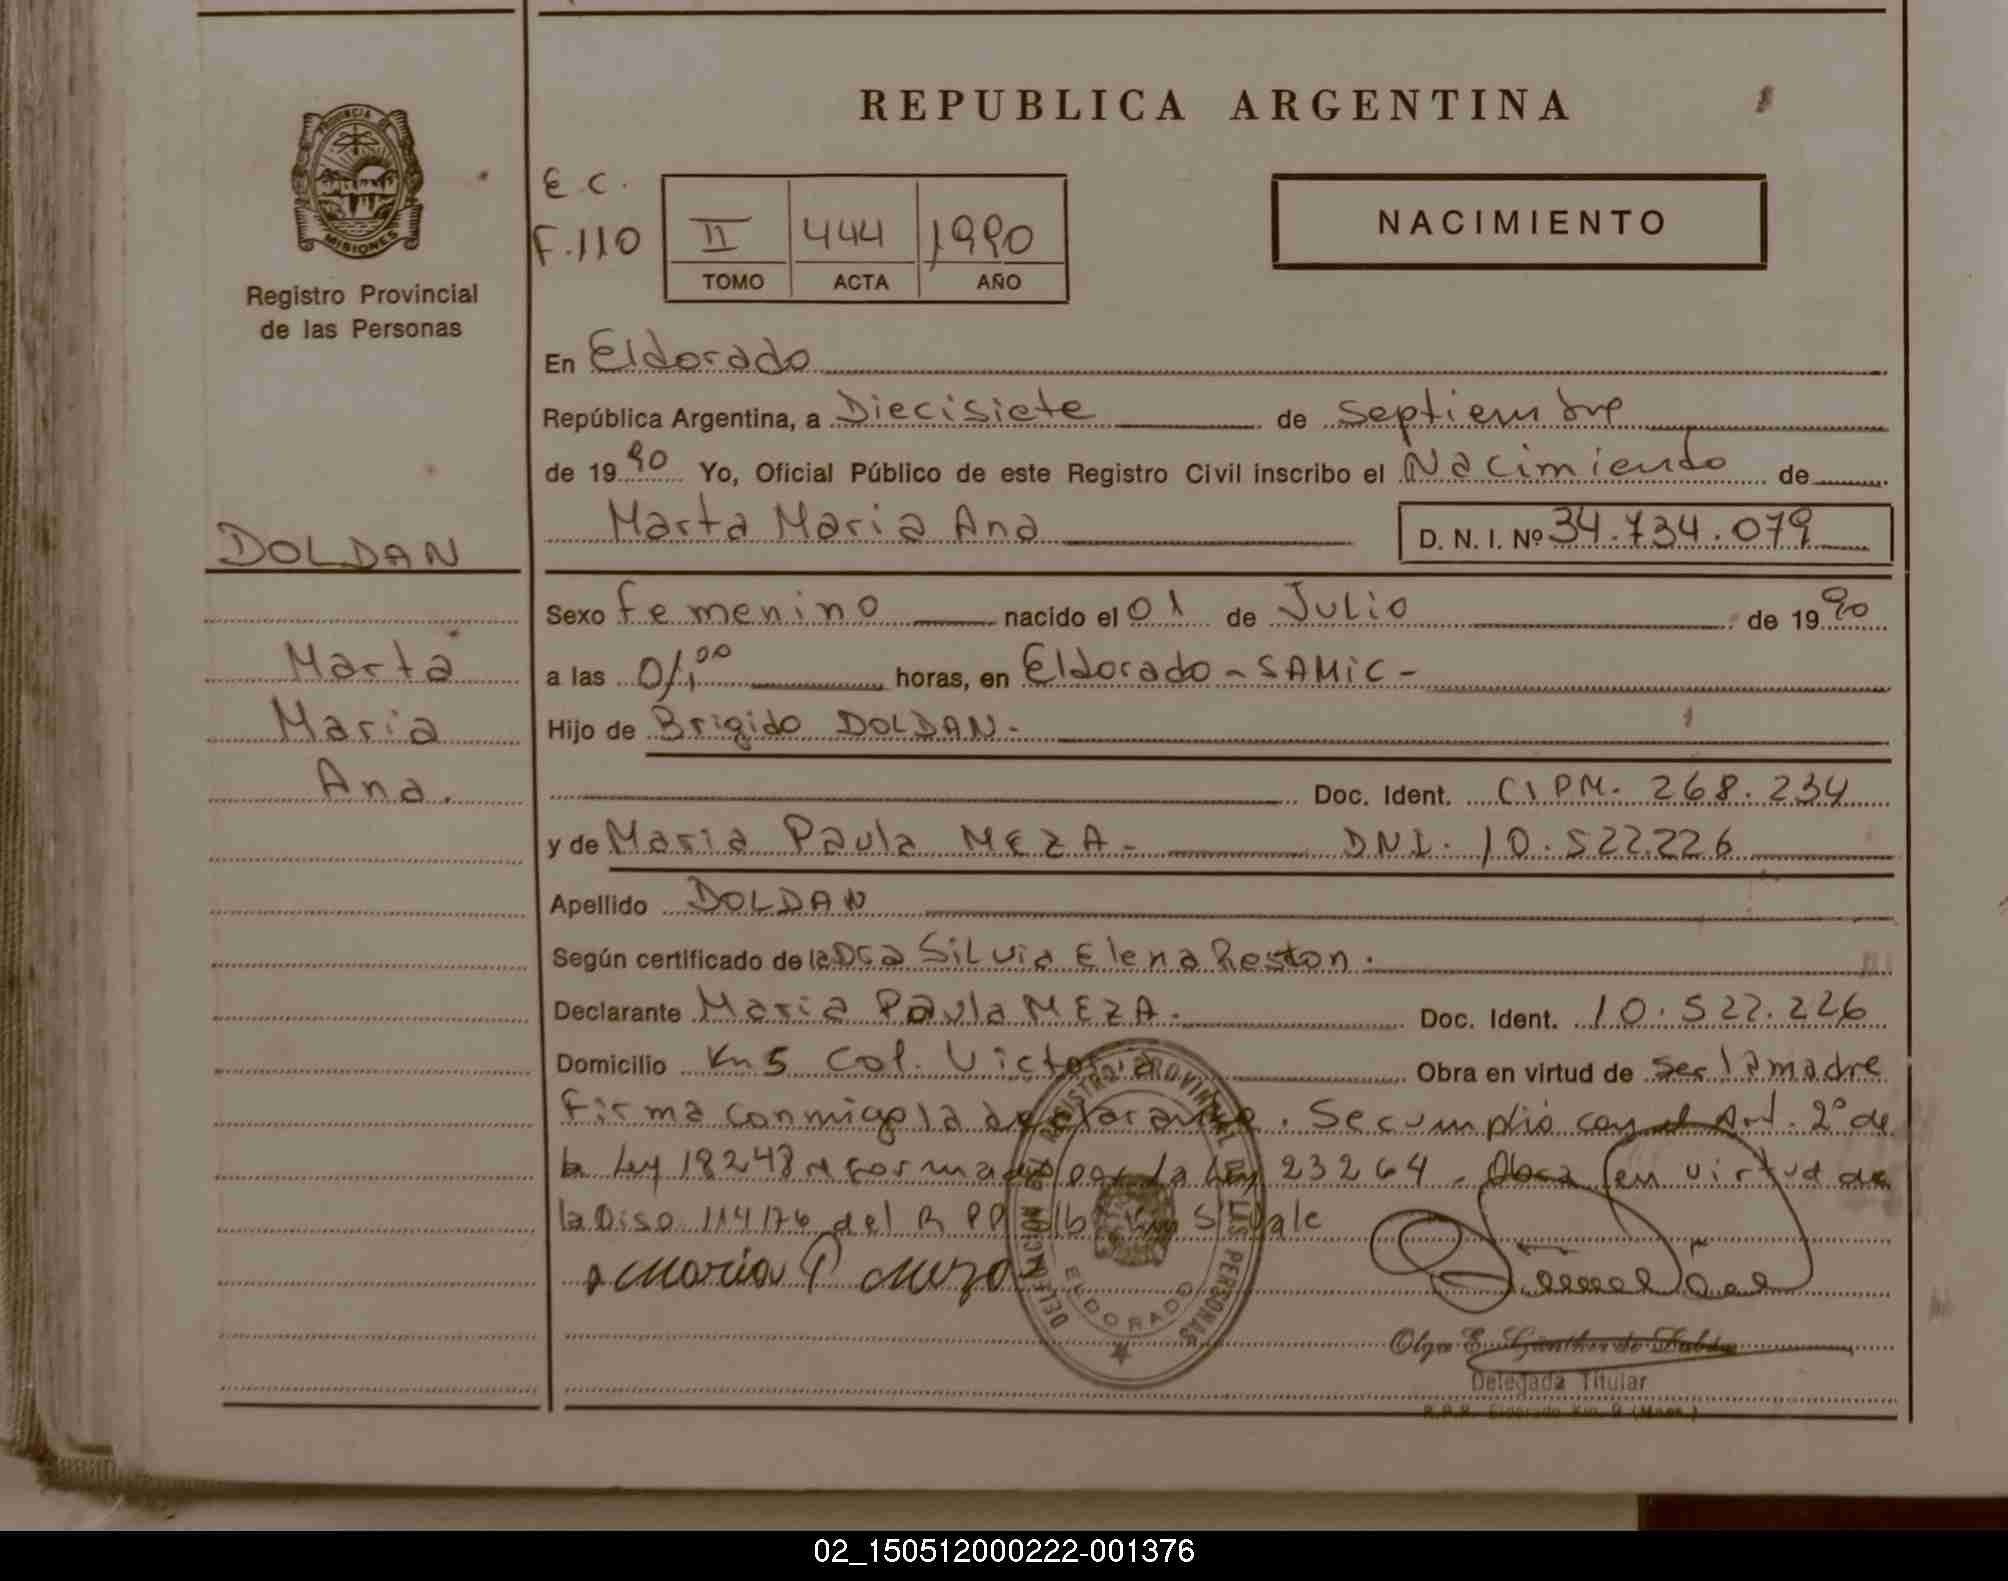 REPUBLICA ARGENTINA
PROVINCIA DE
MISIONES
Registro Provincial
de las Personas
E.C.
F.110
II 444 1990
TOMO ACTA AÑO
NACIMIENTO
En Eldorado
República Argentina, a Diecisiete de Septiembre
de 1990 Yo, Oficial Público de este Registro Civil inscribo el Nacimiento de
Marta Maria Ana D. N. I. Nº 34.734.079
DOLDAN
Marta
Maria
Ana.
Sexo femenino nacido el 01 de Julio de 1990
a las 01,00 horas, en Eldorado - SAMIC -
Hijo de Brigido DOLDAN.
Doc. Ident. CIPM. 268.234
y de Maria Paula MEZA - DNI. 10.522.226
Apellido DOLDAN
Según certificado de la Dra Silvia Elena Reston.
Declarante Maria Paula MEZA. Doc. Ident. 10.522.226
Domicilio Km 5 Col. Victoria Obra en virtud de ser la madre
Firma conmigo la declarante. Se cumplió con el Art. 2º de
la Ley 18248 reformada por la Ley 23264. Obra en virtud de
la Disp 114/76 del R PP Vale
Maria P Meza
DELEGACION DEL REGISTRO PROVINCIAL DE LAS PERSONAS
ELDORADO
Olga E. Günther de
Delegada Titular
R.P.P. Eldorado Km. 9 (Mnes.)
02_150512000222-001376